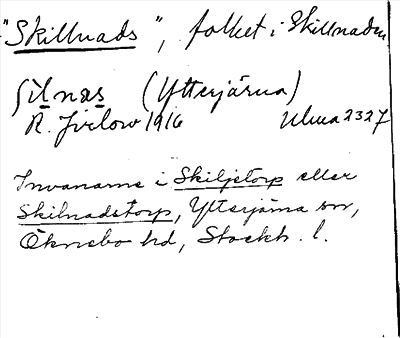 "Skillnads", folket i Skillnaden
ʃilnas (Ytterjärna)
R. Jirlow 1916 Ulma 2327
Invånarne i Skiljetorp eller
Skilnadstorp, Ytterjärna sn,
Öknebo hd, Stockh. l.